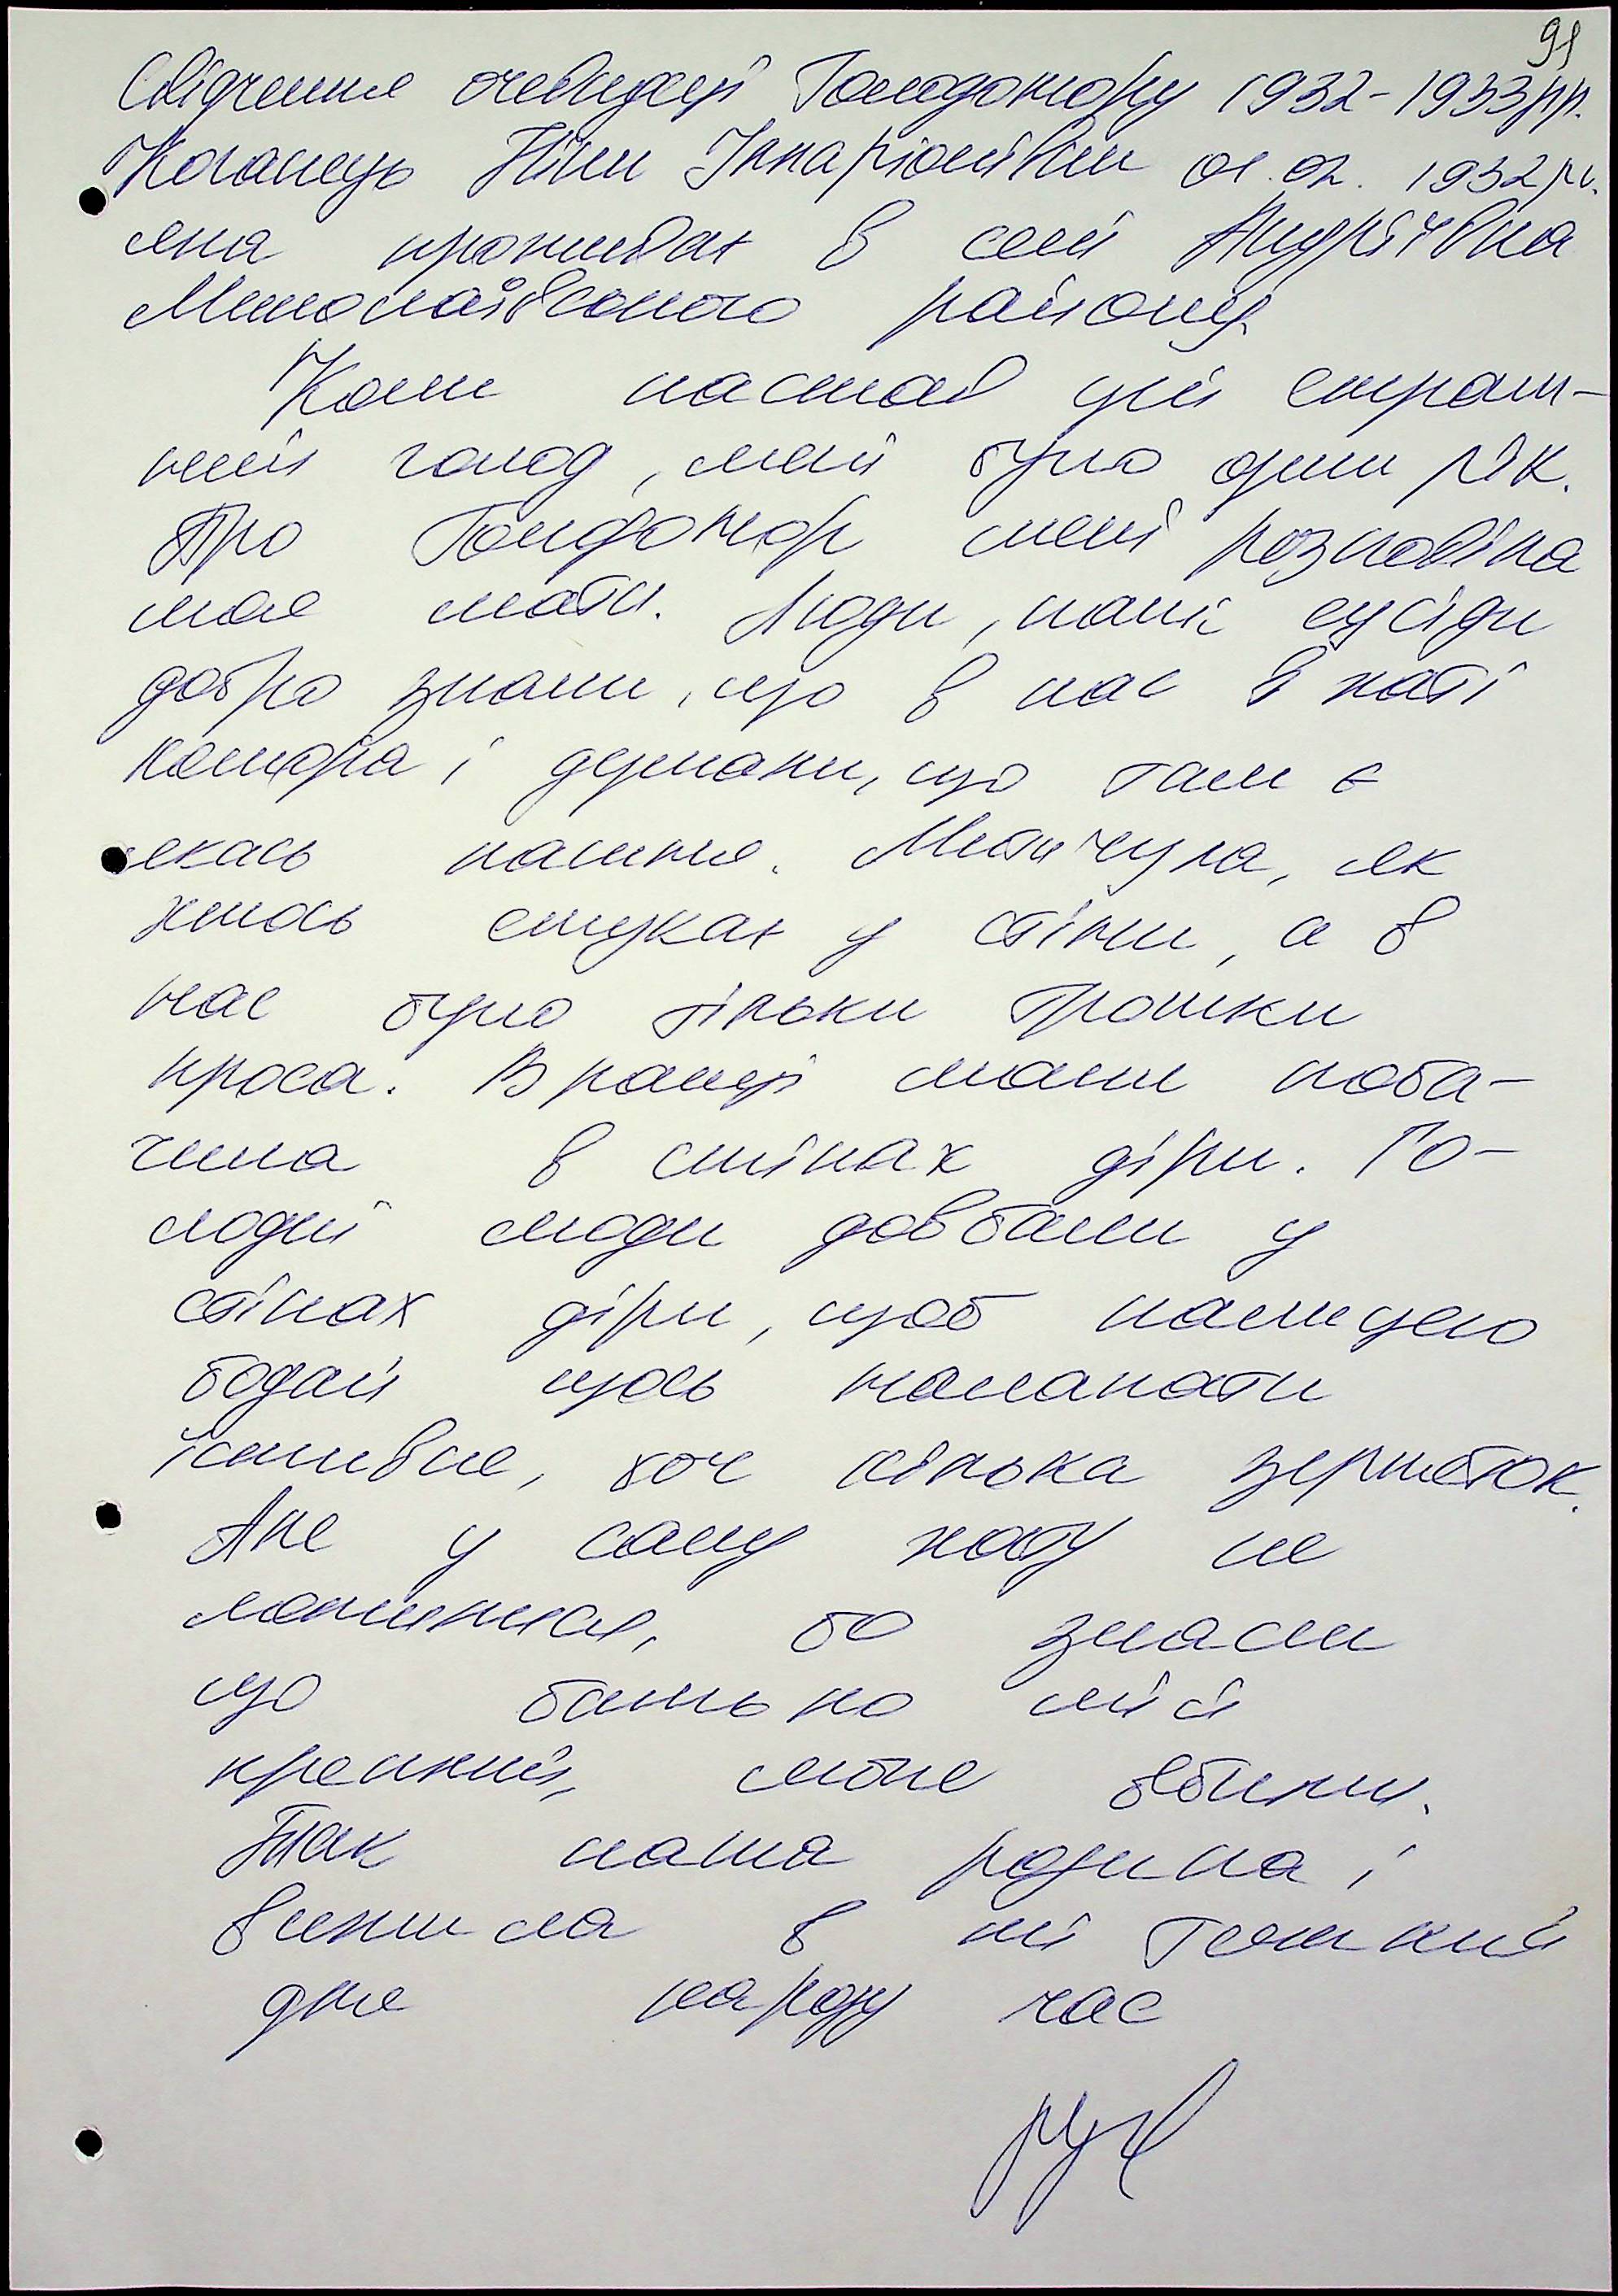 91
Свідчення очевидця Голодомору 1932-1933рр.
Ніни Іларіонівни 01.02. 1932 р.н.
яка проживає в селі Андріївка
Миколаївського району
Коли настав цей страш-
ний голод, мені було один рік.
Про Голодомор мені розповіла
моя мати. Люди, наші сусіди
добре знали, що в нас в хаті
комора і думали, що там є
якась пашня. Мати чула, як
хтось стукає у стіни, а в
нас було тільки трошки
проса. Вранці мати поба-
чила в стінах діри. Го-
лодні люди довбали у
стінах діри, щоб
бодай щось налапати
їстивне, хоч кілька зерняток.
Але у саму хату не
лізли, бо знали
що батько мій
крепкий, може вбити.
Так наша родина і
вижила в цій тяжкий
для народу час